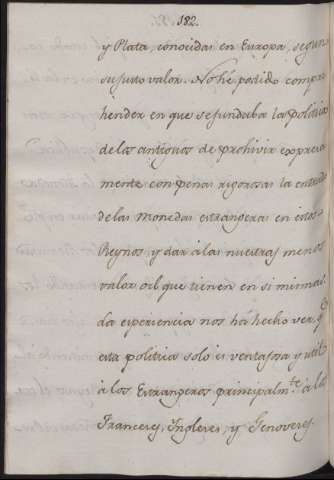 182.
y Plata, conocidas en Europa, segun
su justo valor. No hé podido compre
hender en que se fundaba la politica
de los antiguos de prohivir expresa
mente con penas rigorosas la entrada
de las Monedas estrangeras en estos
Reynos y dar á las nuestras menos
valor del que tienen en si mismas.
La experiencia nos ha hecho ver, q.e
esta politica solo es ventajosa y util
á los Estrangeros principalm.te á los
Franceses, Yngleses, y Genoveses.